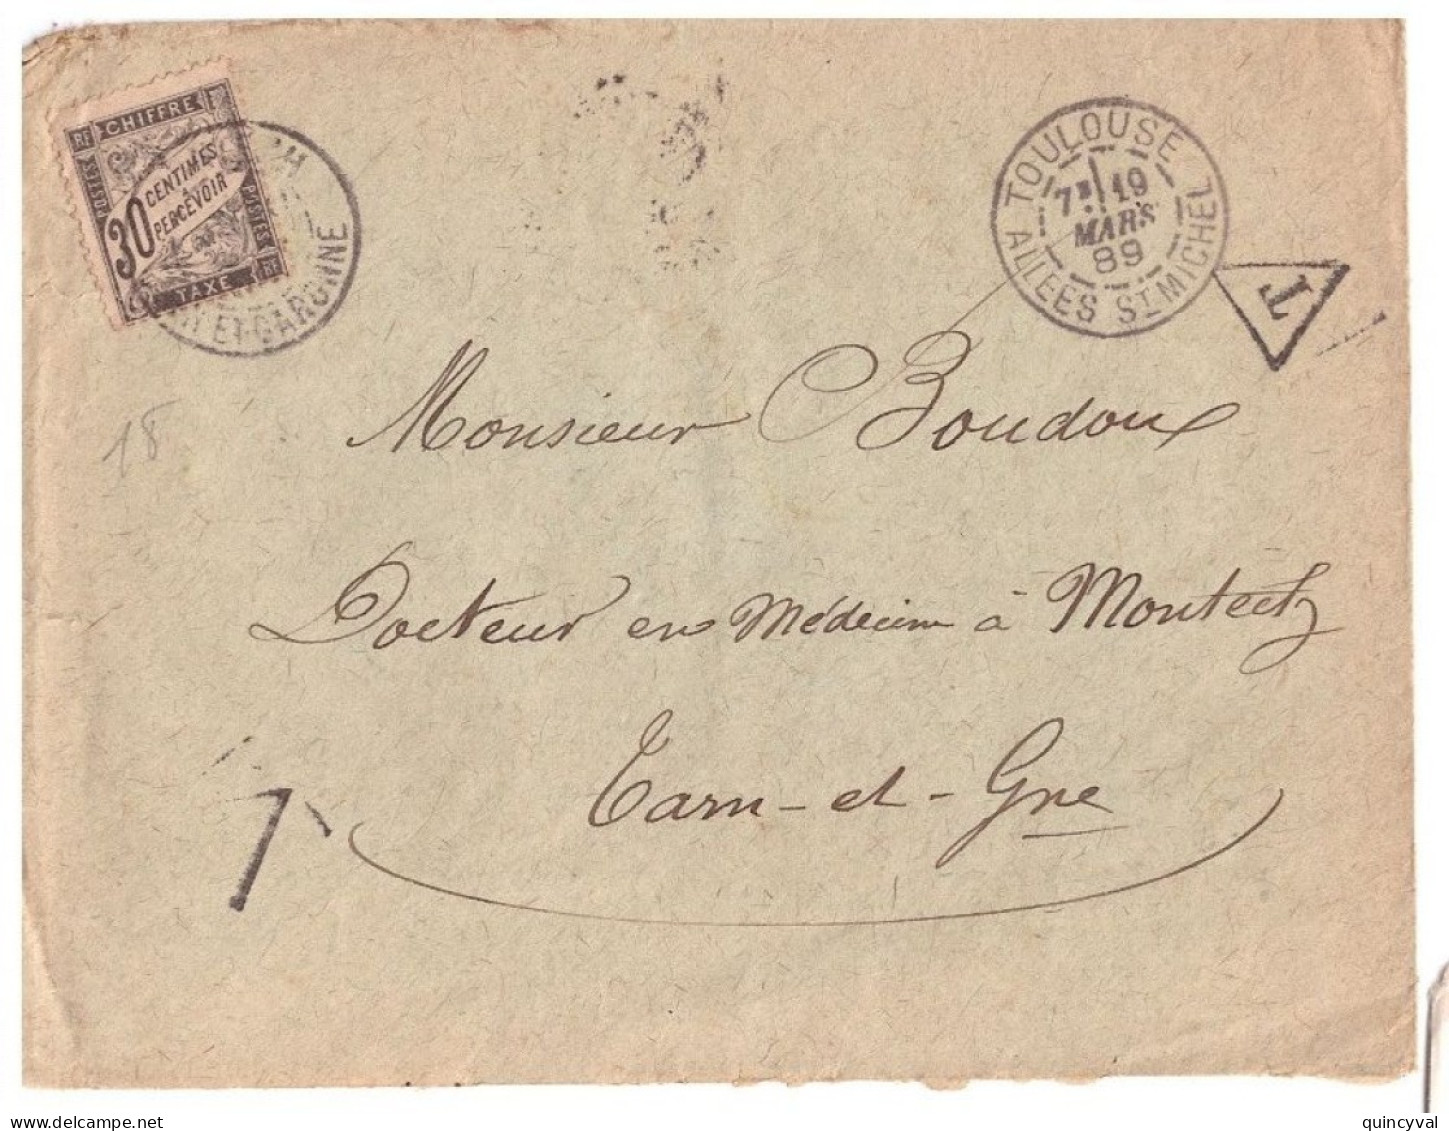 RF CHIFFRE RF
POSTES 30 CENTIMES À PERCEVOIR POSTES
TAXE RF
ET-GARONNE
TOULOUSE
7E 19
MARS
89
ALLÉES ST MICHEL
T
Monsieur Boudoux
18
Docteur en Médecine à Montech
Tarn-et-Gne
delcampe.net
quincyval